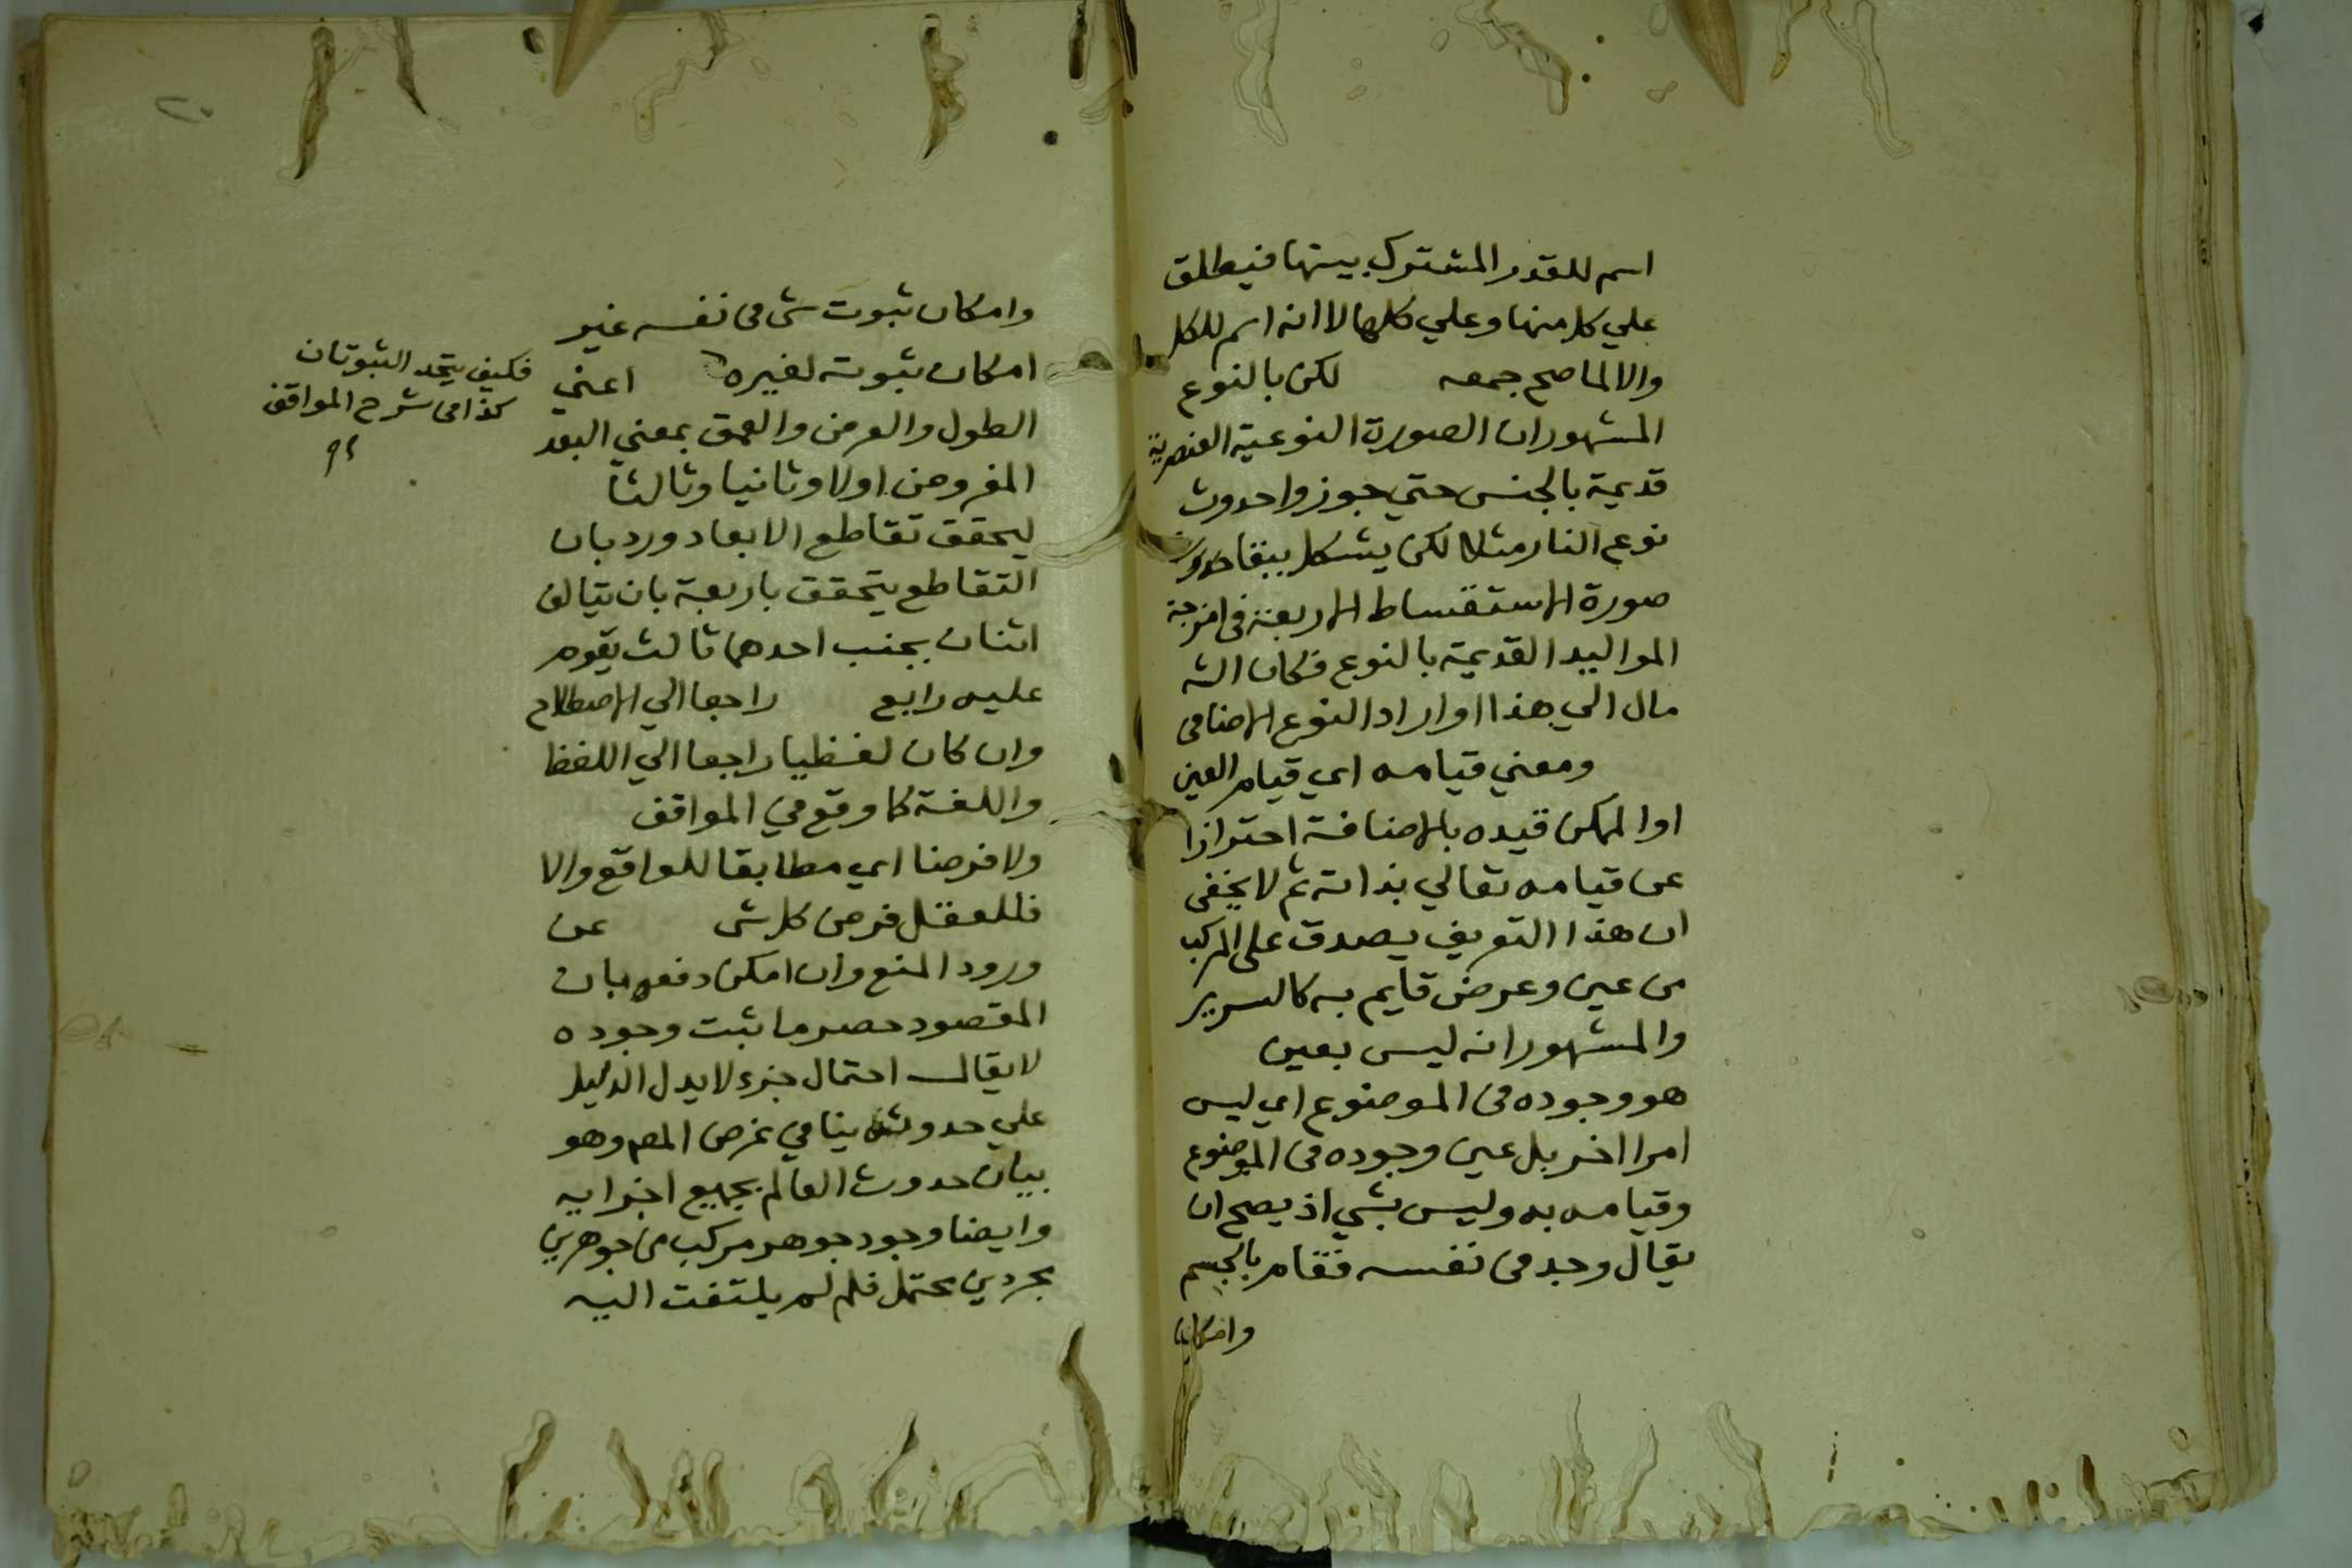 اسم للقدر المشترك بينها فيطلق
علي كل منها وعلي كلها لا انه اسم للكل
والا لما صح جمعه لكن بالنوع
المشهوران الصورة النوعية العنصرية
قديمة بالجنس حتي جوزوا حدوث
نوع النار مثلا لكن يشكل ببقا
صورة الاستقساط الاربعة في امزجة
المواليد القديمة بالنوع فكان الشه
مال الي هذا او اراد النوع الاضافي
ومعني قيامه اي قيام العين
او الممكن قيده بالاضافة احترازا
عن قيامه تعالي بذاته ثم لا يخفي
ان هذا التعريف يصدق علي المركب
من عين وعرض قايم به كالسرير
والمشهور انه ليس بعين
هو وجوده في الموضوع اي ليس
امرا اخر بل عين وجوده في الموضوع
وقيامه به وليس بشي اذ يصح ان
يقال وجد في نفسه فقام بالجسم
وامكان
وامكان ثبوت شي في نفسه غير
امكان ثبوته لغيره اعني
الطول والعرض والعمق بمعني البعد
المفروض اولا وثانيا وثالثا
ليحقق تقاطع الابعاد ورد بان
التقاطع يتحقق باربعة بان يتالف
اثنان بجنب احدهما ثالث يقوم
عليه رابع راجعا الي الاصطلاح
وان كان لفظيا راجعا الي اللفظ
واللغة كما وقع في المواقف
ولا فرضا اي مطابقا للواقع والا
فللعقل فرض كل شي عن
ورود المنع وان امكن دفعه بان
المقصود حصر ما ثبت وجوده
لا يقال احتمال جزء لا يدل الدليل
علي حدوثه ينافي غرض المص وهو
بيان حدوث العالم بجميع اجزايه
وايضا وجود جوهر مركب من جوهرين
مجردين محتمل فلم لم يلتفت اليه
فكيف يتحد الثبوتان
كذا في شرح المواقف
٢٠